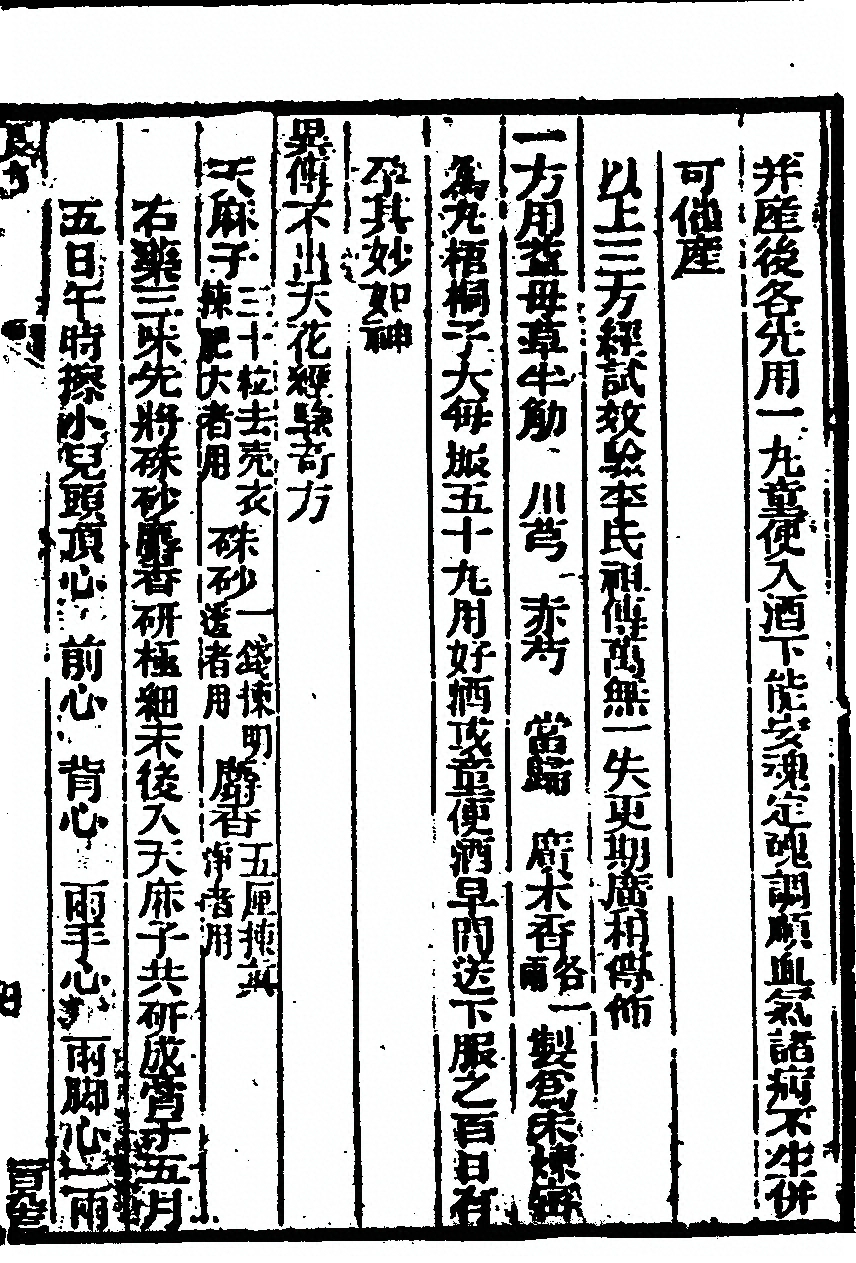 并產後各先用一丸童便入酒下能安魂定魄調順血氣諸病不生併
可催產
以上三方經試效驗李氏祖傳萬無一失更期廣和傳佈
一方用益母草牛觔 川芎 赤芍 當歸 廣木香各一兩製為末煉蜜
為丸梧桐子大每服五十丸用好酒或童便酒早間送下服之百日有
孕其妙如神
異傳不出天花經驗奇方
天麻子三十粒去壳衣揀肥大者用 硃砂一錢揀明透者用 麝香五厘揀淨者用
右藥三味先將硃砂麝香研極細末後入天麻子共研成膏于五月
五日午時擦小兒頭頂心 前心 背心 兩手心 兩脚心 兩
良方